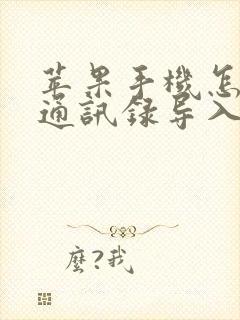 苹果手機怎
通訊録导入
麼?我